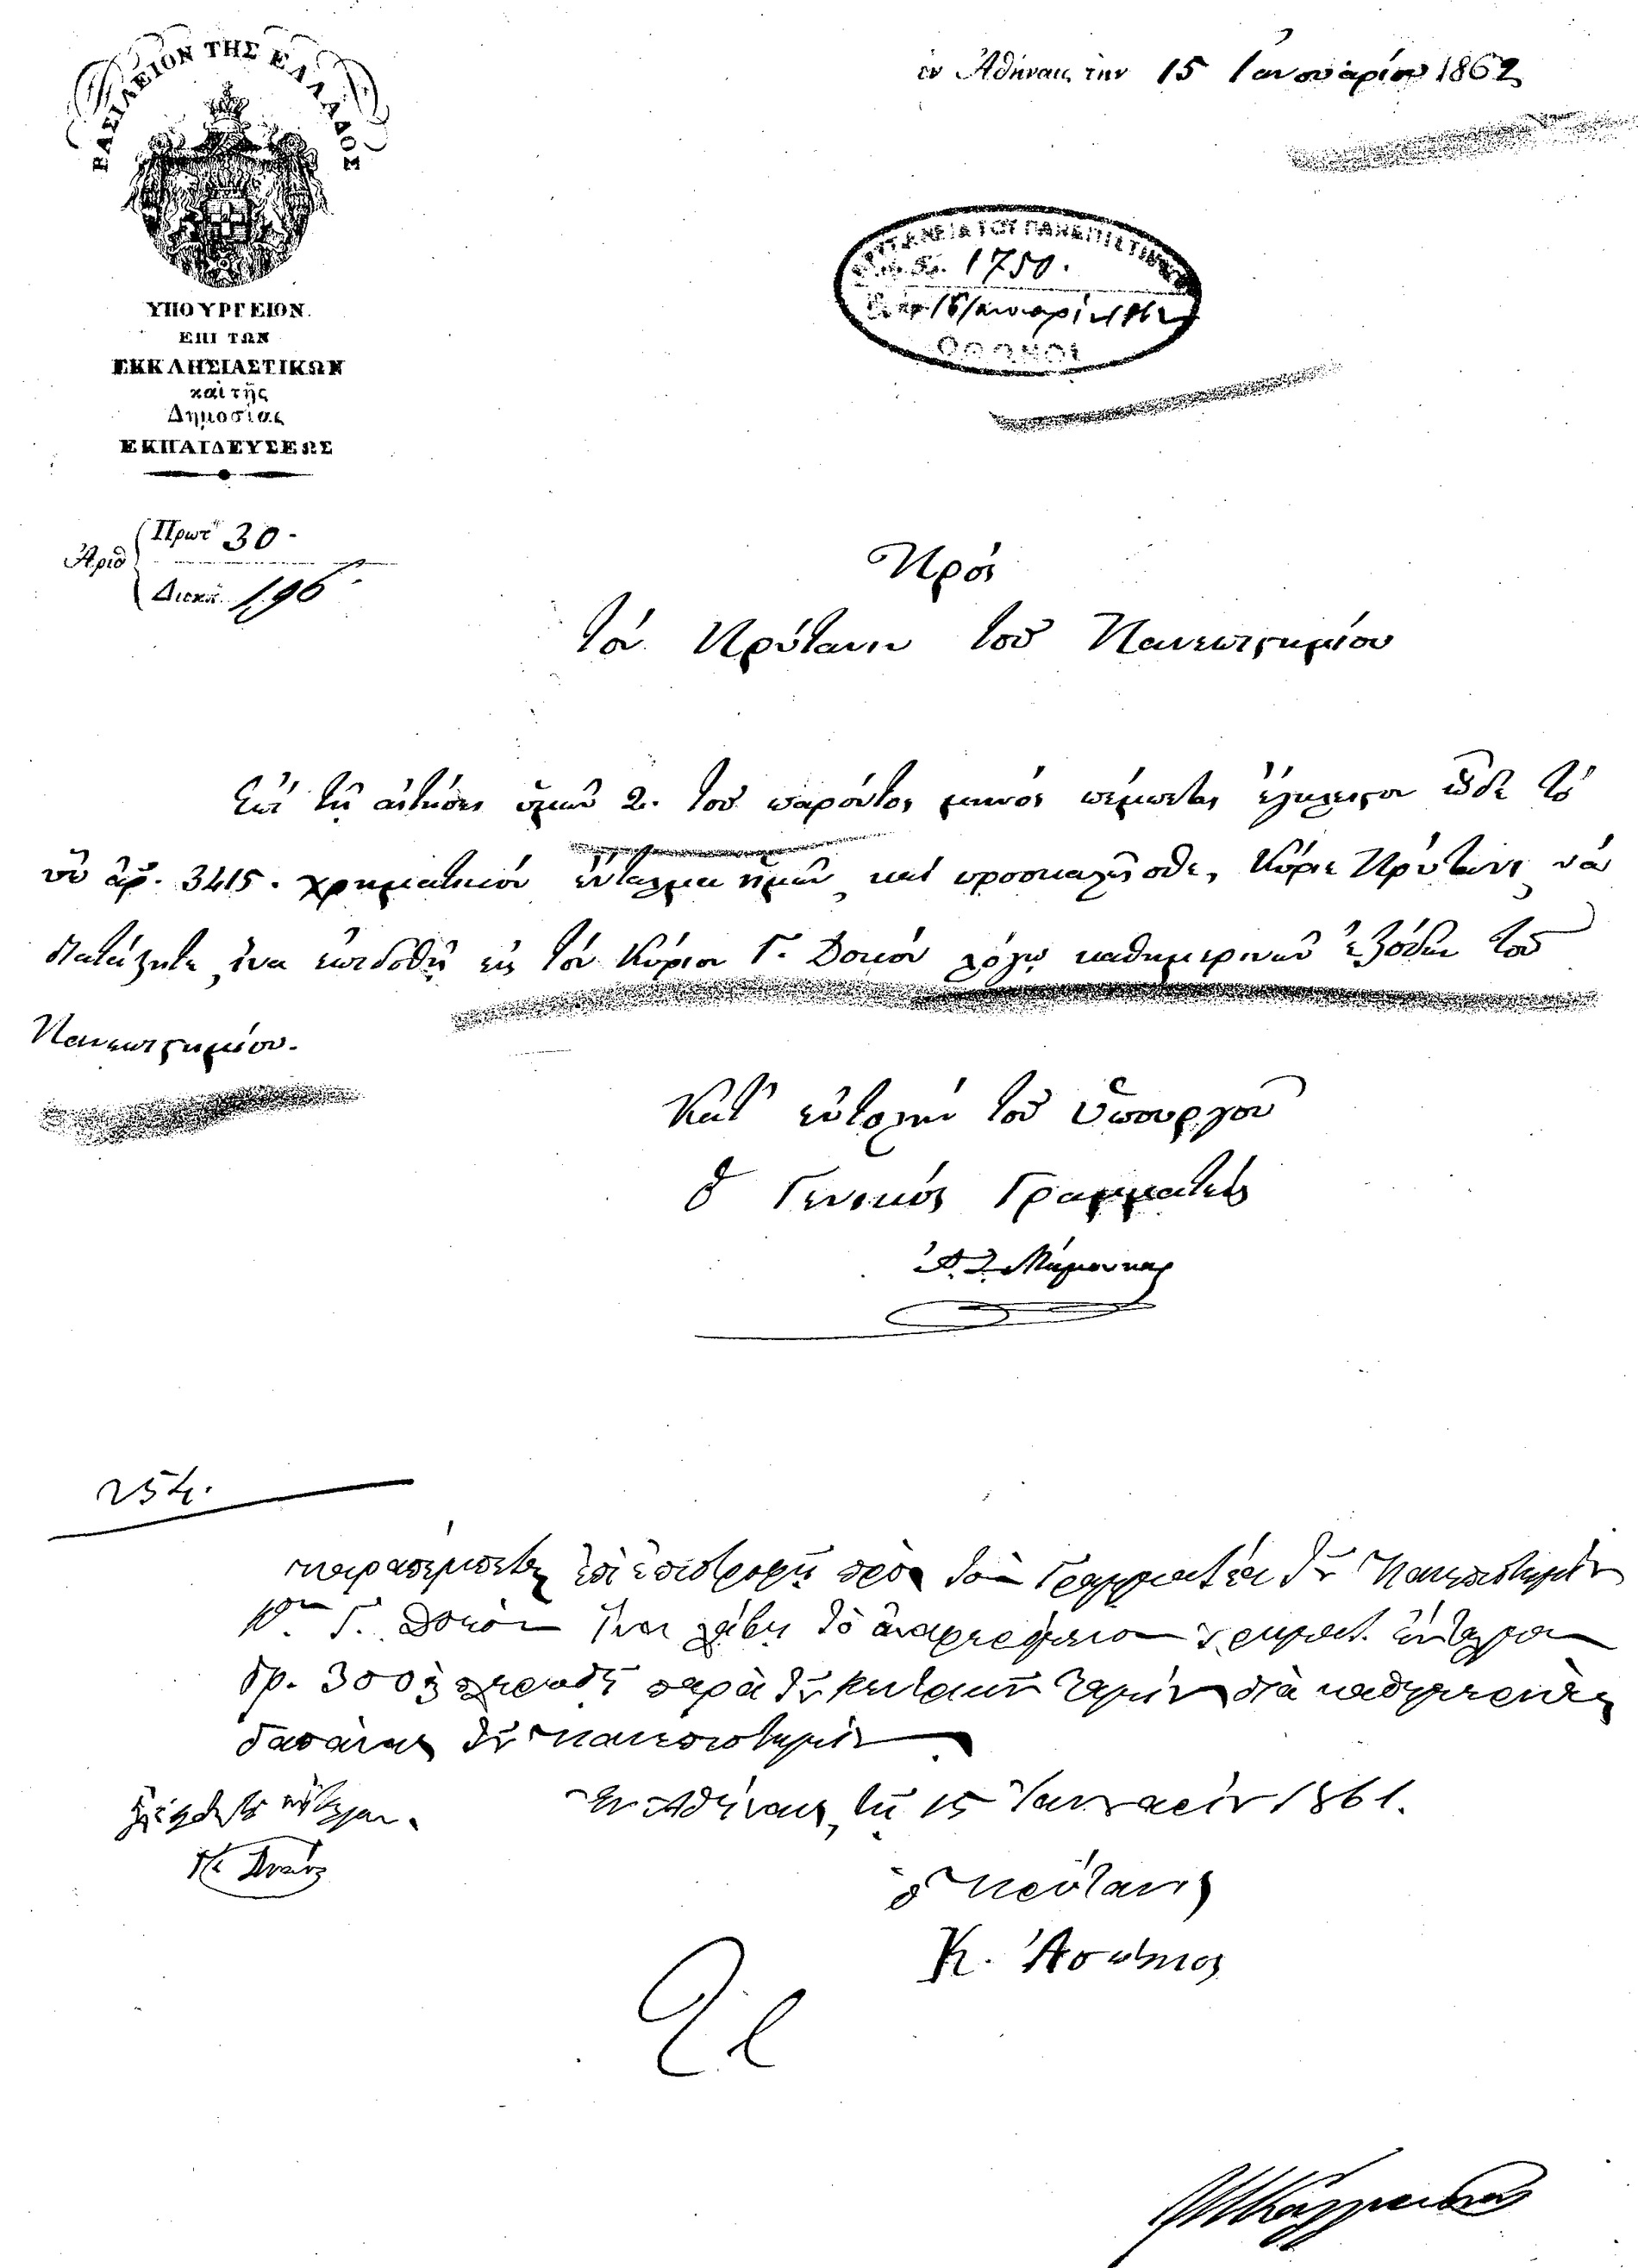 ΒΑΣΙΛΕΙΟΝ ΤΗΣ ΕΛΛΑΔΟΣ
ἐν Ἀθήναις τὴν 15 Ἰανουαρίου 1862
ΠΡΥΤΑΝΕΙΑ ΤΟΥ ΠΑΝΕΠΙΣΤΗΜΙΟΥ
1750.
15 Ἰανουαρίου 1862
ΟΘΩΝΟΣ
ΥΠΟΥΡΓΕΙΟΝ
ΕΠΙ ΤΩΝ
ΕΚΚΛΗΣΙΑΣΤΙΚΩΝ
καὶ τῆς
Δημοσίας
ΕΚΠΑΙΔΕΥΣΕΩΣ
Ἀριθ
Πρωτ 30.
Διεκπ. 196
Πρὸς
τὸν Πρύτανιν τοῦ Πανεπιστημίου
Ἐπὶ τῇ αἰτήσει ὑμῶν 2. τοῦ παρόντος μηνὸς πέμπεται ἔγκλειστον ὧδε τὸ
ὑπ' ἀρ. 3415. χρηματικὸν ἔνταλμα ἡμῶν, καὶ προσκαλεῖσθε, Κύριε Πρύτανι, νὰ
διατάξητε, ἵνα ἐπιδοθῇ εἰς τὸν Κύριον Γ. Δοκὸν λόγῳ καθημερινῶν ἐξόδων τοῦ
Πανεπιστημίου.
Κατ' ἐντολὴν τοῦ Ὑπουργοῦ
ὁ Γενικὸς Γραμματεὺς
Ἀ. Ζ. Μάμουκας
254.
παραπέμπεται ἐπὶ ἐπιστροφῇ πρὸς τὸν Γραμματέα τοῦ Πανεπιστημίου
Κον Γ. Δοκὸν ἵνα λάβῃ τὸ ἀναφερόμενον χρηματ. ἔνταλμα
δρ. 300 πληρωθῇ παρὰ τοῦ κεντρικοῦ Ταμείου διὰ καθημερινὰς
δαπάνας τοῦ Πανεπιστημίου
Ἐν Ἀθήναις, τῇ 15 Ἰανουαρίου 1861.
ὁ Πρύτανις
Κ. Ἀσώπιος